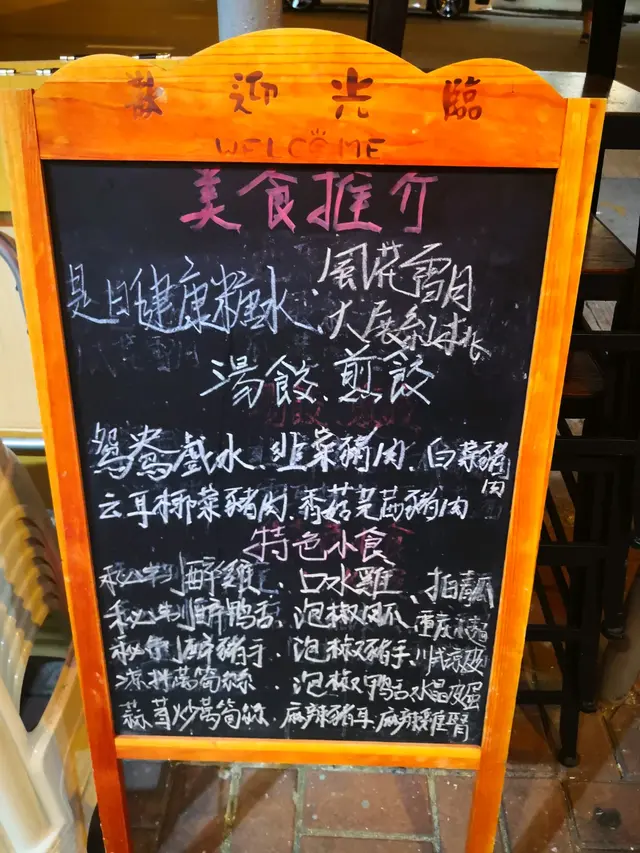 歡迎光臨
WELCOME
美食推介
是日健康糖水、風花雪月
大展
湯餃、煎餃
鴛鴦戲水、韭菜豬肉、白菜豬肉
云耳椰菜豬肉、香菇芫茜豬肉
特色小食
秘制醉雞、口水雞、拍青瓜
秘制醉鸭舌、泡椒凤爪、重庆
秘制醉豬手、泡椒豬手、川式凉
凉拌萵筍絲、泡椒鸭舌、水晶皮蛋
蒜茸炒萵筍絲、麻辣豬耳、麻辣雞腎